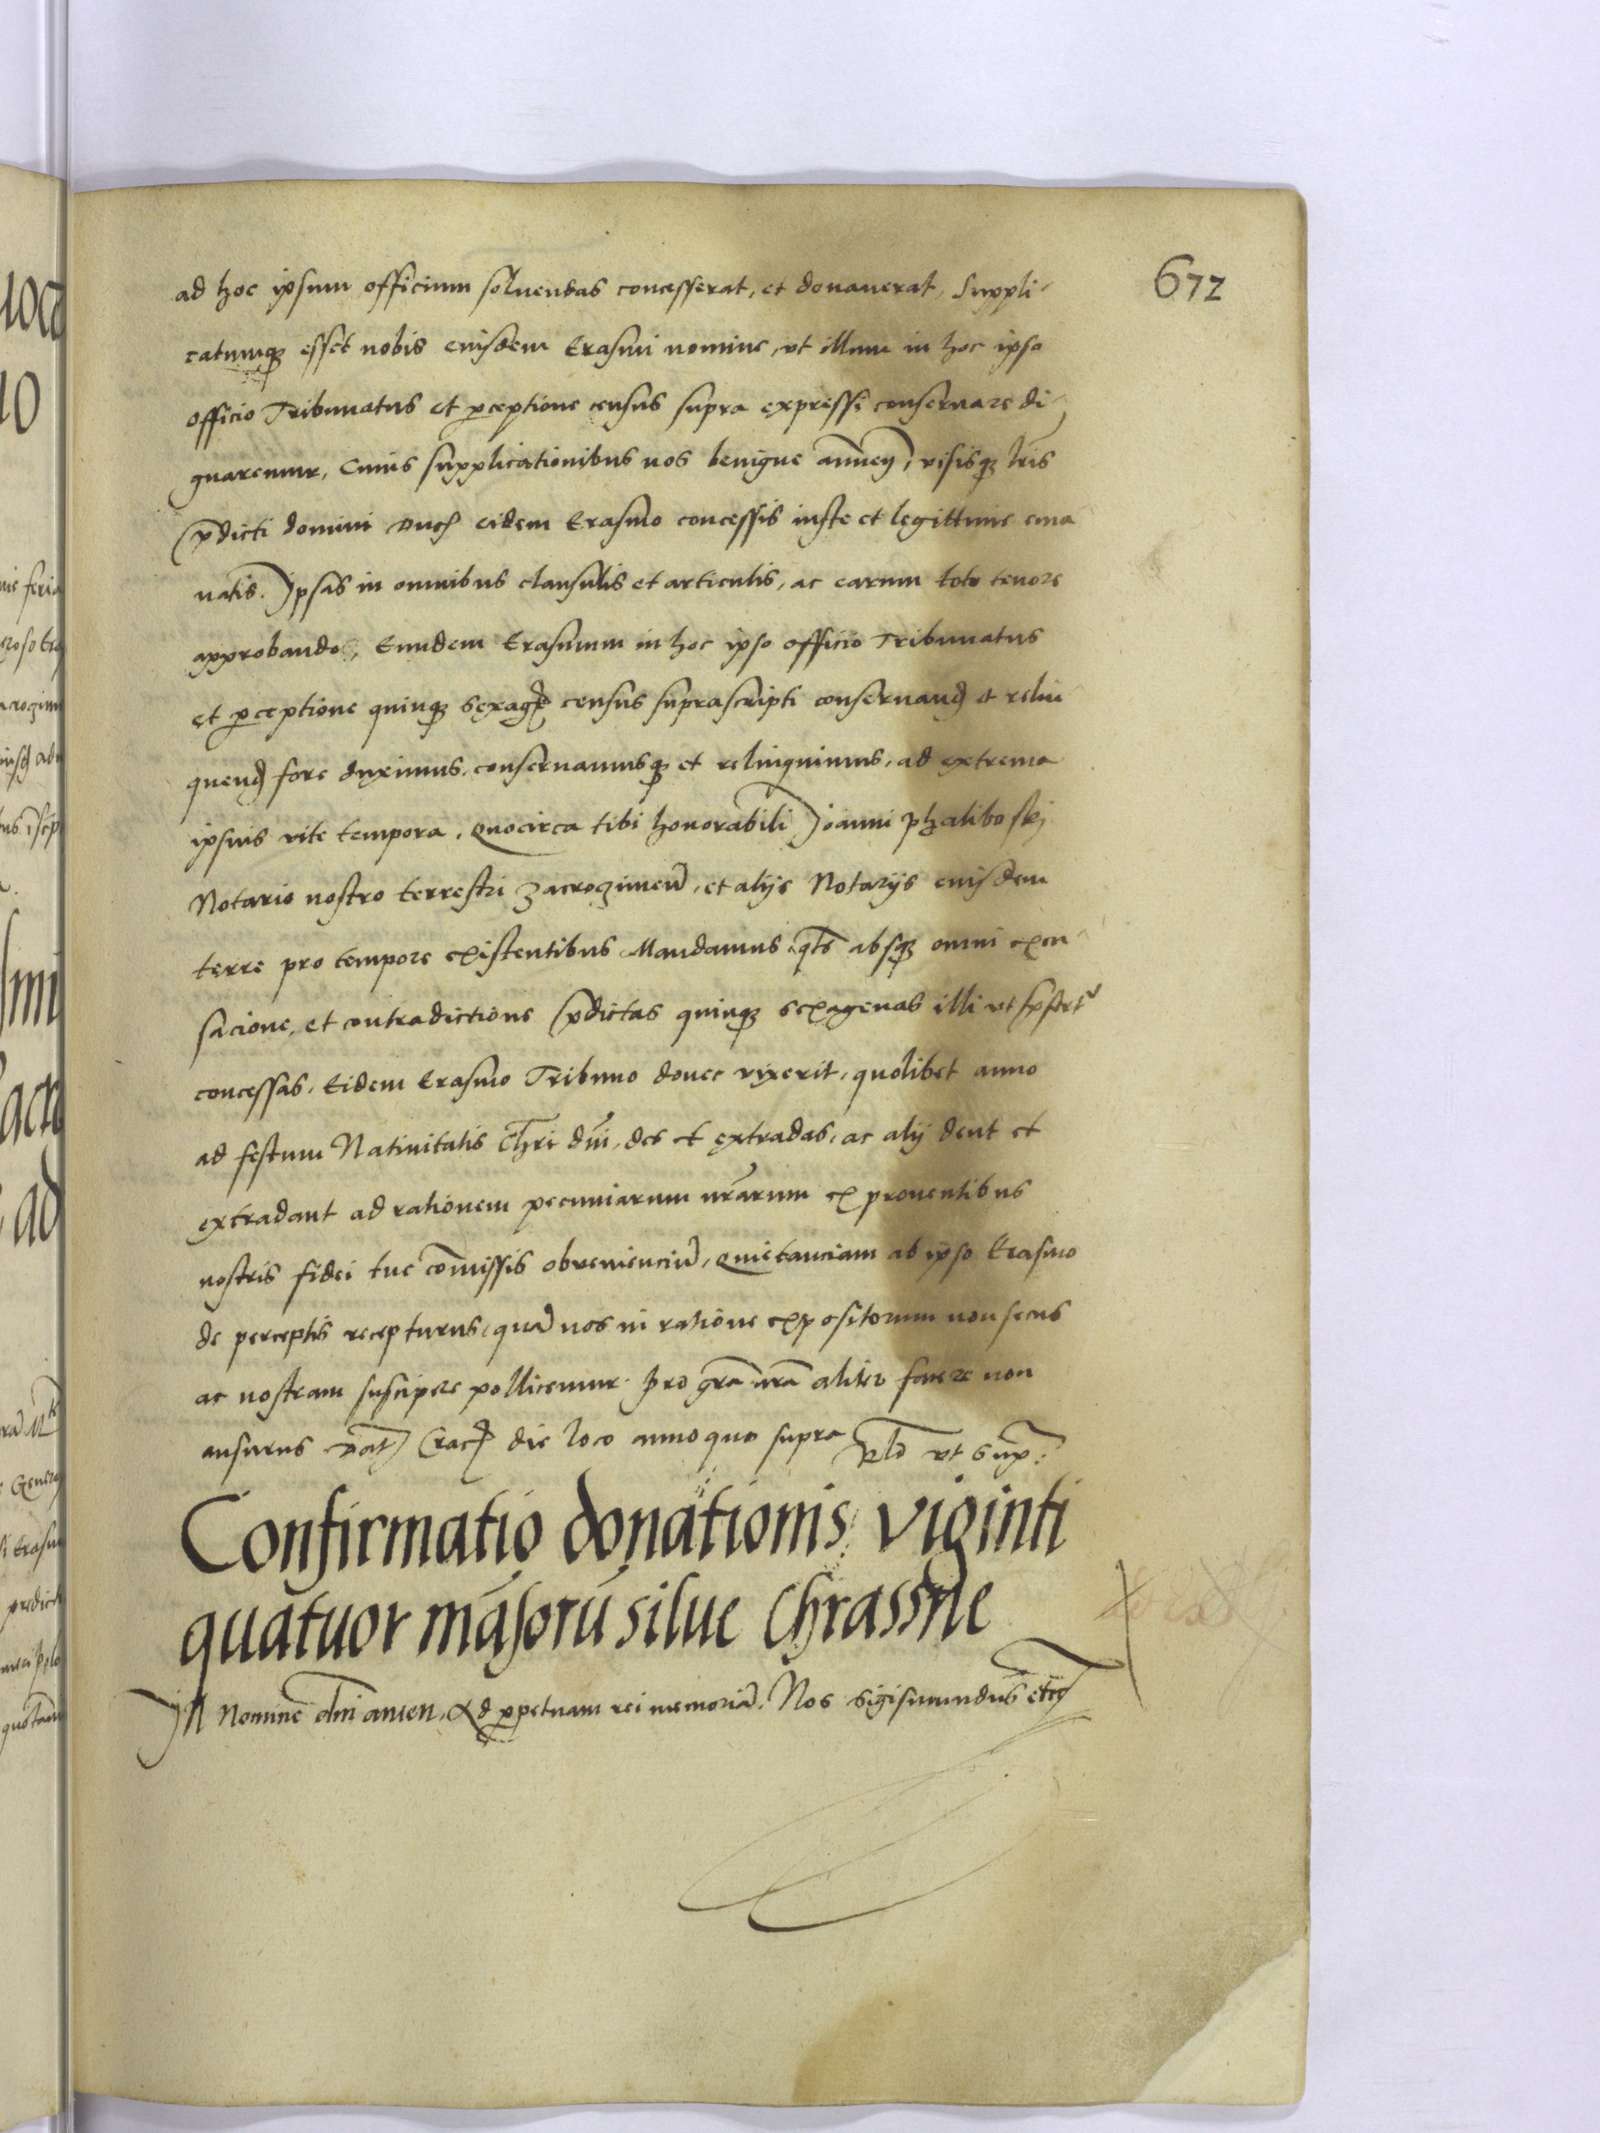 672
ad hoc ipsum officium soluendas concesserat, et donauerat, Suppli-
catumq esset nobis eiusdem Erasmi nomine, vt illum in hoc ipso
officio Tribunatus et pceptione census supra expressi conseruare di-
gnaremur, Cuius supplicationibus nos benigne annuen, visisq lris
pdicti domini Duc eidem Erasmo concessis iuste et legittime ema
natis. Ipsas in omnibus clausulis et articulis, ac earum toto tenore
approbando, Eundem Erasmum in hoc ipso officio Tribunatus
et pceptione quinq sexag census suprascripti conseruand et relin
quend fore duximus, conseruamusq et relinquimus, ad extrema
ipsius vite tempora. Quocirca tibi honorabili Joanni Phaliboskj
Notario nostro terrestri Zacrozimen, et alijs Notarijs eiusdem
terre pro tempore existentibus Mandamus qts absq omni excu
sacione, et contradictione pdictas quinq sexagenas illi vt
concessas, Eidem Erasmo Tribuno donec vixerit, quolibet anno
ad festum Natiuitatis Chri dni, des et extradas, ac alij dent et
extradant ad rationem pecuniarum nrarum ex prouentibus
nostris fidei tue comissis obueniencium, Quietanciam ab ipso Erasmo
de perceptis recepturus, qua nos in ratione expositorum non secus
ac nostram suscipere pollicemur. Pro gra nra aliter facere non
ausurus Dat Crac die loco anno quo supra Rlo vt sup:
Confirmatio donationis viginti
quatuor mansoru silue Chrassne
In Nomine dni amen. Ad ppetuam rei memoria. Nos Sigismundus etc